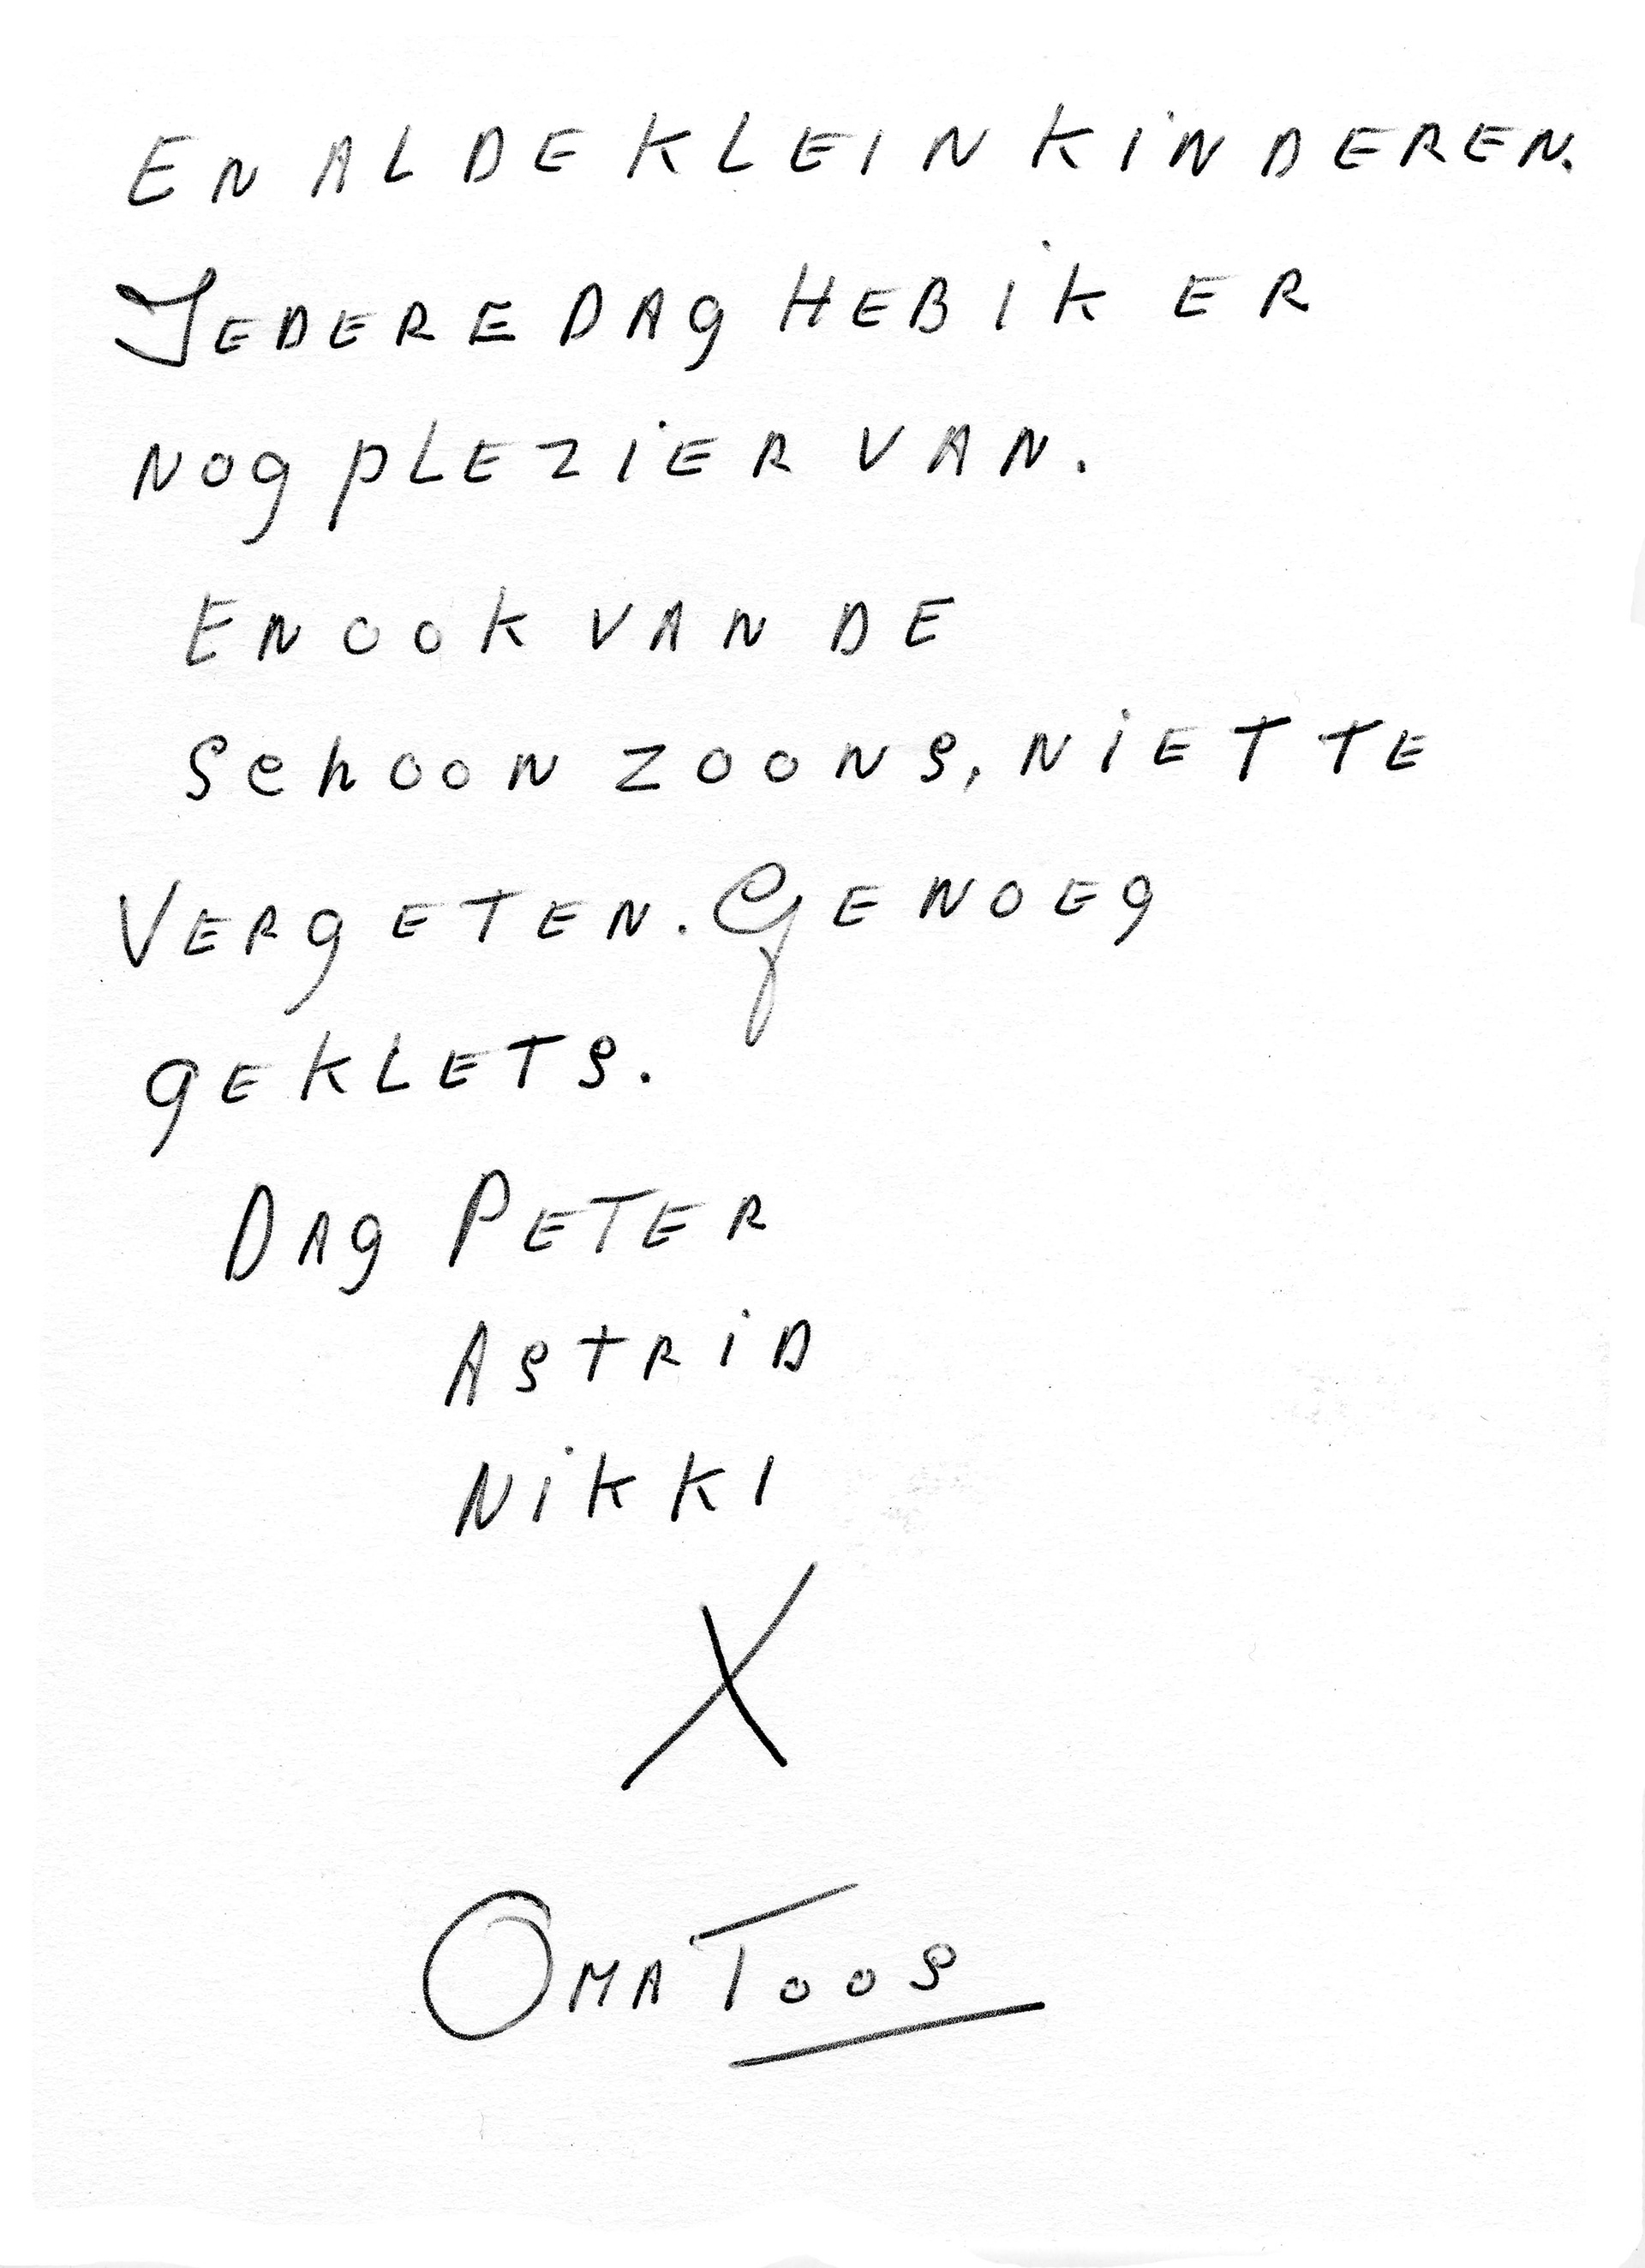 EN AL DE KLEINKINDEREN.
IEDERE DAG HEB IK ER
NOG PLEZIER VAN.
EN OOK VAN DE
SCHOONZOONS, NIET TE
VERGETEN. GENOEG
GEKLETS.
DAG PETER
ASTRID
NIKKI
X
OMA TOOS